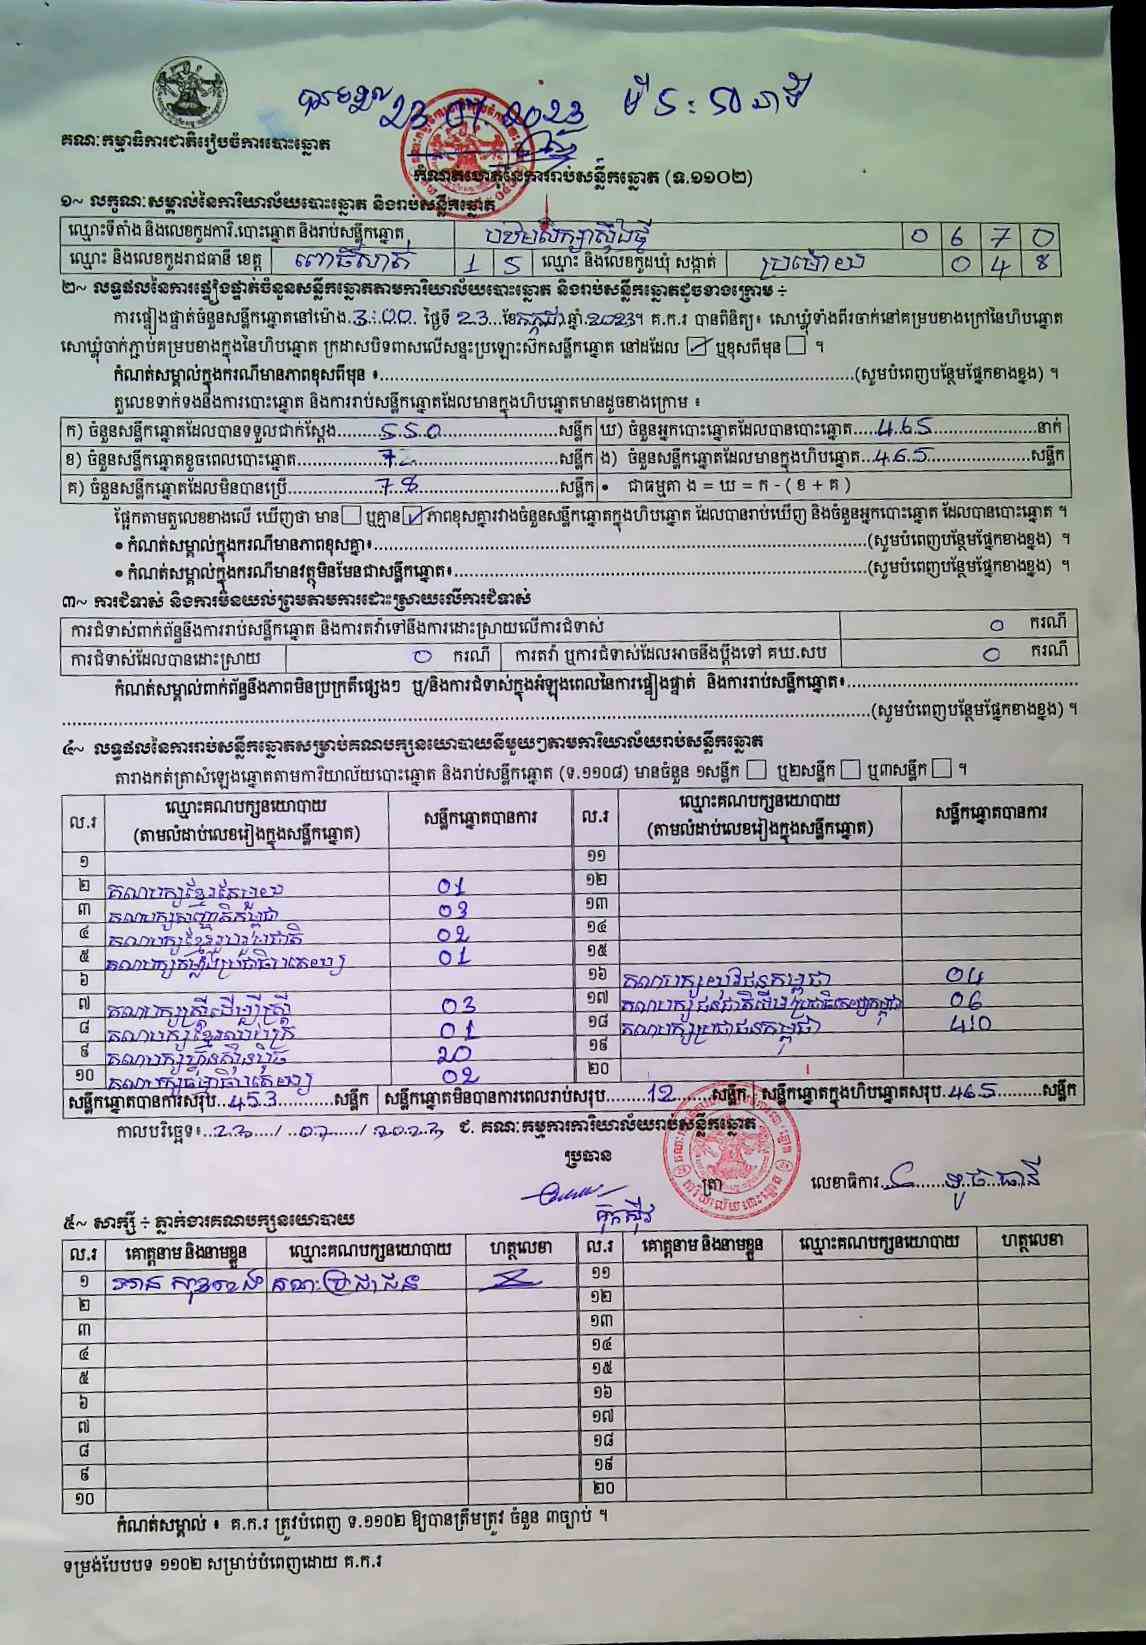 បានទទួល 23 07 2023 ម៉ោ 5 : 50 នាទី
គណៈកម្មាធិការជាតិរៀបចំការបោះឆ្នោត
កំណត់ហេតុនៃការរាប់សន្លឹកឆ្នោត (ទ.១១០២)
១~ លក្ខណៈសម្គាល់នៃការិយាល័យបោះឆ្នោត និងរាប់សន្លឹកឆ្នោត
ឈ្មោះទីតាំង និងលេខកូដការិ.បោះឆ្នោត និងរាប់សន្លឹកឆ្នោត បឋមសិក្សាស្ទឹងថ្មី 0 6 7 0
ឈ្មោះ និងលេខកូដរាជធានី ខេត្ត ពោធិ៍សាត់ 1 5 ឈ្មោះ និងលេខកូដឃុំ សង្កាត់ ប្រម៉ោយ 0 4 8
២~ លទ្ធផលនៃការផ្ទៀងផ្ទាត់ចំនួនសន្លឹកឆ្នោតតាមការិយាល័យបោះឆ្នោត និងរាប់សន្លឹកឆ្នោតដូចខាងក្រោម ÷
ការផ្ទៀងផ្ទាត់ចំនួនសន្លឹកឆ្នោតនៅម៉ោង.3:00. ថ្ងៃទី 23...ខែកក្កដា.ឆ្នាំ.2023។ គ.ក.រ បានពិនិត្យ៖ សោឃ្លុំទាំងពីរចាក់នៅគម្របខាងក្រៅនៃហិបឆ្នោត
សោឃ្លុំចាក់ភ្ជាប់គម្របខាងក្នុងនៃហិបឆ្នោត ក្រដាសបិទពាសលើសន្ទះប្រឡោះស៊កសន្លឹកឆ្នោត នៅដដែល ☑ ឬខុសពីមុន ☐ ។
កំណត់សម្គាល់ក្នុងករណីមានភាពខុសពីមុន ៖...(សូមបំពេញបន្ថែមផ្នែកខាងខ្នង) ។
តួលេខទាក់ទងនឹងការបោះឆ្នោត និងការរាប់សន្លឹកឆ្នោតដែលមានក្នុងហិបឆ្នោតមានដូចខាងក្រោម ៖
ក) ចំនួនសន្លឹកឆ្នោតដែលបានទទួលជាក់ស្ដែង...550...សន្លឹក ឃ) ចំនួនអ្នកបោះឆ្នោតដែលបានបោះឆ្នោត...465...នាក់
ខ) ចំនួនសន្លឹកឆ្នោតខូចពេលបោះឆ្នោត...7...សន្លឹក ង) ចំនួនសន្លឹកឆ្នោតដែលមានក្នុងហិបឆ្នោត...465...សន្លឹក
គ) ចំនួនសន្លឹកឆ្នោតដែលមិនបានប្រើ...78...សន្លឹក • ជាធម្មតា ង = ឃ = ក - ( ខ + គ )
ផ្អែកតាមតួលេខខាងលើ ឃើញថា មាន ☐ ឬគ្មាន ☑ ភាពខុសគ្នារវាងចំនួនសន្លឹកឆ្នោតក្នុងហិបឆ្នោត ដែលបានរាប់ឃើញ និងចំនួនអ្នកបោះឆ្នោត ដែលបានបោះឆ្នោត ។
• កំណត់សម្គាល់ក្នុងករណីមានភាពខុសគ្នា៖...(សូមបំពេញបន្ថែមផ្នែកខាងខ្នង) ។
• កំណត់សម្គាល់ក្នុងករណីមានវត្ថុមិនមែនជាសន្លឹកឆ្នោត៖...(សូមបំពេញបន្ថែមផ្នែកខាងខ្នង) ។
៣~ ការជំទាស់ និងការមិនយល់ព្រមតាមការដោះស្រាយលើការជំទាស់
ការជំទាស់ពាក់ព័ន្ធនឹងការរាប់សន្លឹកឆ្នោត និងការតវ៉ាទៅនឹងការដោះស្រាយលើការជំទាស់ 0 ករណី
ការជំទាស់ដែលបានដោះស្រាយ 0 ករណី ការតវ៉ា ឬការជំទាស់ដែលអាចនឹងប្ដឹងទៅ គឃ.សប 0 ករណី
កំណត់សម្គាល់ពាក់ព័ន្ធនឹងភាពមិនប្រក្រតីផ្សេងៗ ឬ/និងការជំទាស់ក្នុងអំឡុងពេលនៃការផ្ទៀងផ្ទាត់ និងការរាប់សន្លឹកឆ្នោត៖...
...(សូមបំពេញបន្ថែមផ្នែកខាងខ្នង) ។
៤~ លទ្ធផលនៃការរាប់សន្លឹកឆ្នោតសម្រាប់គណបក្សនយោបាយនីមួយៗតាមការិយាល័យរាប់សន្លឹកឆ្នោត
តារាងកត់ត្រាសំឡេងឆ្នោតតាមការិយាល័យបោះឆ្នោត និងរាប់សន្លឹកឆ្នោត (ទ.១១០៨) មានចំនួន ១សន្លឹក ☐ ឬ២សន្លឹក ☐ ឬ៣សន្លឹក ☐ ។
ល.រ ឈ្មោះគណបក្សនយោបាយ (តាមលំដាប់លេខរៀងក្នុងសន្លឹកឆ្នោត) សន្លឹកឆ្នោតបានការ ល.រ ឈ្មោះគណបក្សនយោបាយ (តាមលំដាប់លេខរៀងក្នុងសន្លឹកឆ្នោត) សន្លឹកឆ្នោតបានការ
១ ១១
២ គណបក្សខ្មែរតែមួយ 01 ១២
៣ គណបក្សសញ្ជាតិកម្ពុជា 03 ១៣
៤ គណបក្សខ្មែររួបរួមជាតិ 02 ១៤
៥ គណបក្សកម្លាំងប្រជាធិបតេយ្យ 01 ១៥
៦ ១៦ គណបក្សយុវជនកម្ពុជា 04
៧ គណបក្សស្ត្រីដើម្បីស្ត្រី 03 ១៧ គណបក្សជនជាតិដើមប្រជាធិបតេយ្យកម្ពុជា 06
៨ គណបក្សខ្មែរឈប់ក្រ 01 ១៨ គណបក្សប្រជាជនកម្ពុជា 410
៩ គណបក្សហ៊្វុនស៊ិនប៉ិច 20 ១៩
១០ គណបក្សធម្មាធិបតេយ្យ 02 ២០
សន្លឹកឆ្នោតបានការសរុប..453...សន្លឹក សន្លឹកឆ្នោតមិនបានការពេលរាប់សរុប...12...សន្លឹក សន្លឹកឆ្នោតក្នុងហិបឆ្នោតសរុប.465...សន្លឹក
កាលបរិច្ឆេទ៖..23.../..07.../.2023 ជ. គណៈកម្មការការិយាល័យរាប់សន្លឹកឆ្នោត
ប្រធាន
ត្រា លេខាធិការ... ទូច ធានី
៥~ សាក្សី ÷ ភ្នាក់ងារគណបក្សនយោបាយ
ល.រ គោត្តនាម និងនាមខ្លួន ឈ្មោះគណបក្សនយោបាយ ហត្ថលេខា ល.រ គោត្តនាម និងនាមខ្លួន ឈ្មោះគណបក្សនយោបាយ ហត្ថលេខា
១ គណៈប្រជាជន ១១
២ ១២
៣ ១៣
៤ ១៤
៥ ១៥
៦ ១៦
៧ ១៧
៨ ១៨
៩ ១៩
១០ ២០
កំណត់សម្គាល់ ៖ គ.ក.រ ត្រូវបំពេញ ទ.១១០២ ឱ្យបានត្រឹមត្រូវ ចំនួន ៣ច្បាប់ ។
ទម្រង់បែបបទ ១១០២ សម្រាប់បំពេញដោយ គ.ក.រ